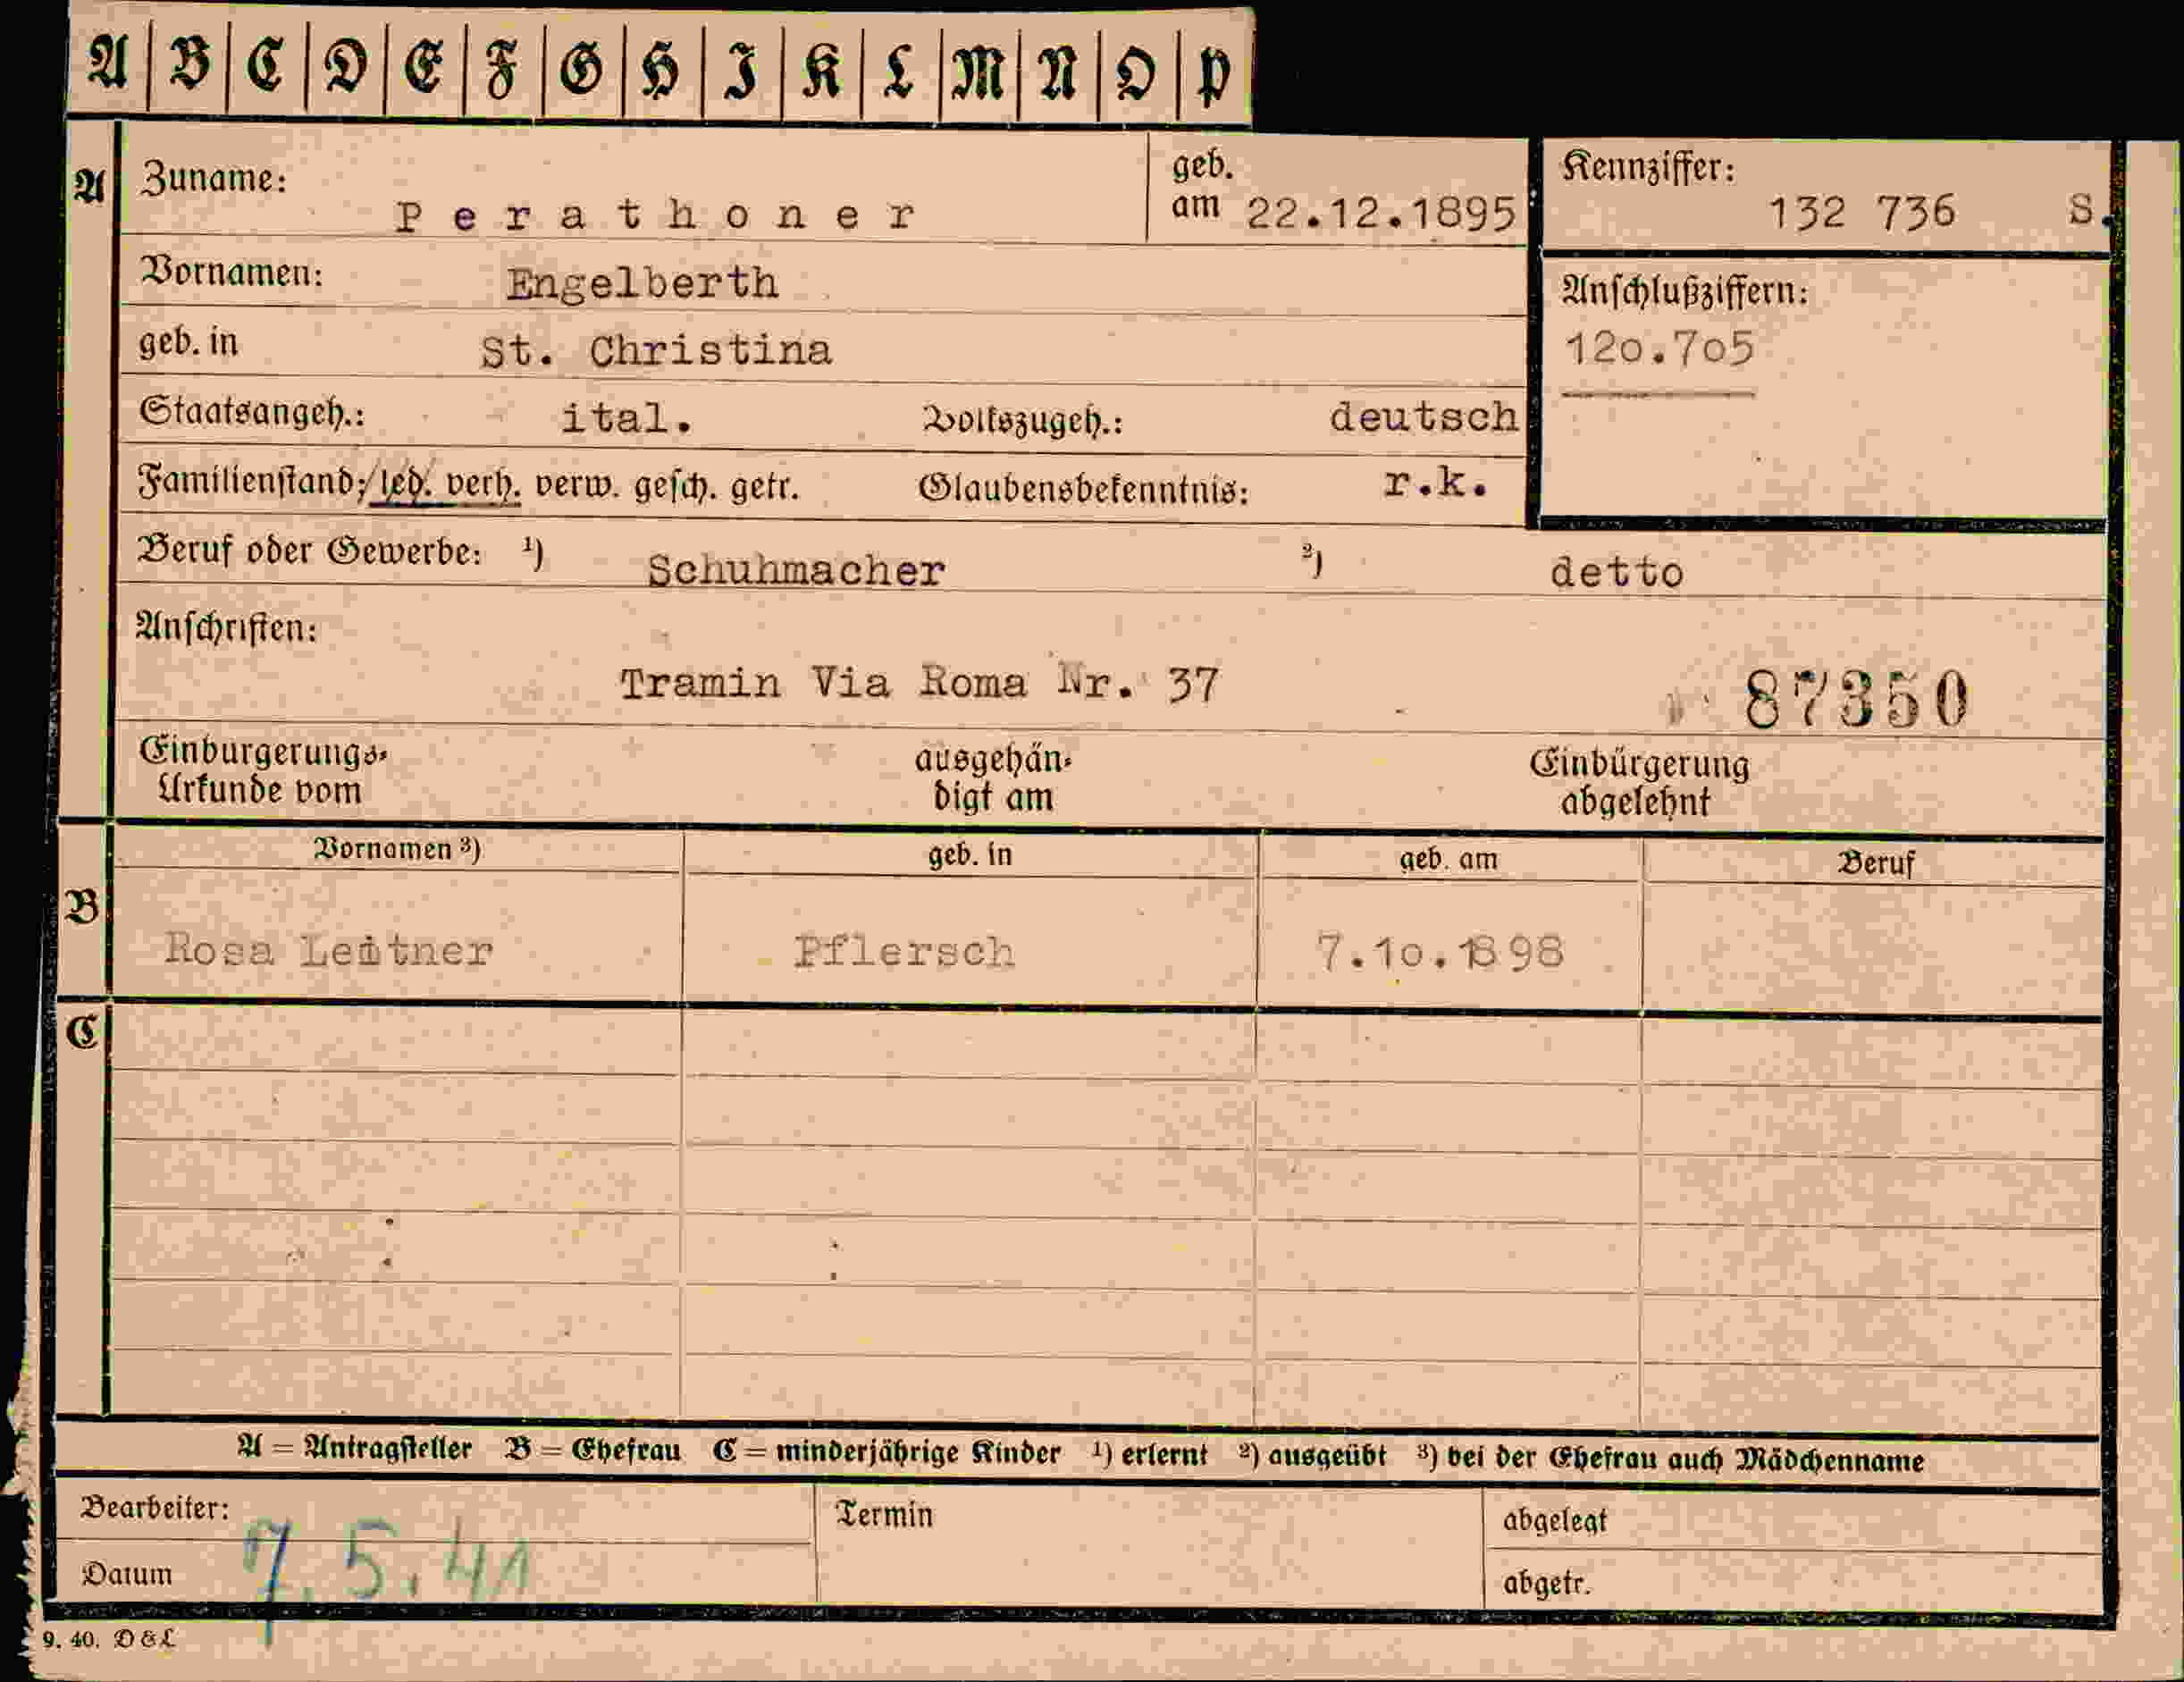 A B C D E F G H I K L M N O P
A Zuname: Perathoner geb. am 22.12.1895 Kennziffer: 132 736 S.
Vornamen: Engelberth Anschlußziffern:
geb. in St. Christina 120.705
Staatsangeh.: ital. Volkszugeh.: deutsch
Familienstand: led. verh. verw. gesch. getr. Glaubensbekenntnis: r.k.
Beruf oder Gewerbe: 1) Schuhmacher 2) detto
Anschriften:
Tramin Via Roma Nr. 37 87350
Einbürgerungs-Urkunde vom ausgehändigt am Einbürgerung abgelehnt
Vornamen 3) geb. in geb. am Beruf
B Rosa Leitner Pflersch 7.10.1898
C
A = Antragsteller B = Ehefrau C = minderjährige Kinder 1) erlernt 2) ausgeübt 3) bei der Ehefrau auch Mädchenname
Bearbeiter: Termin abgelegt
Datum 7.5.41 abgetr.
9. 40. D & L